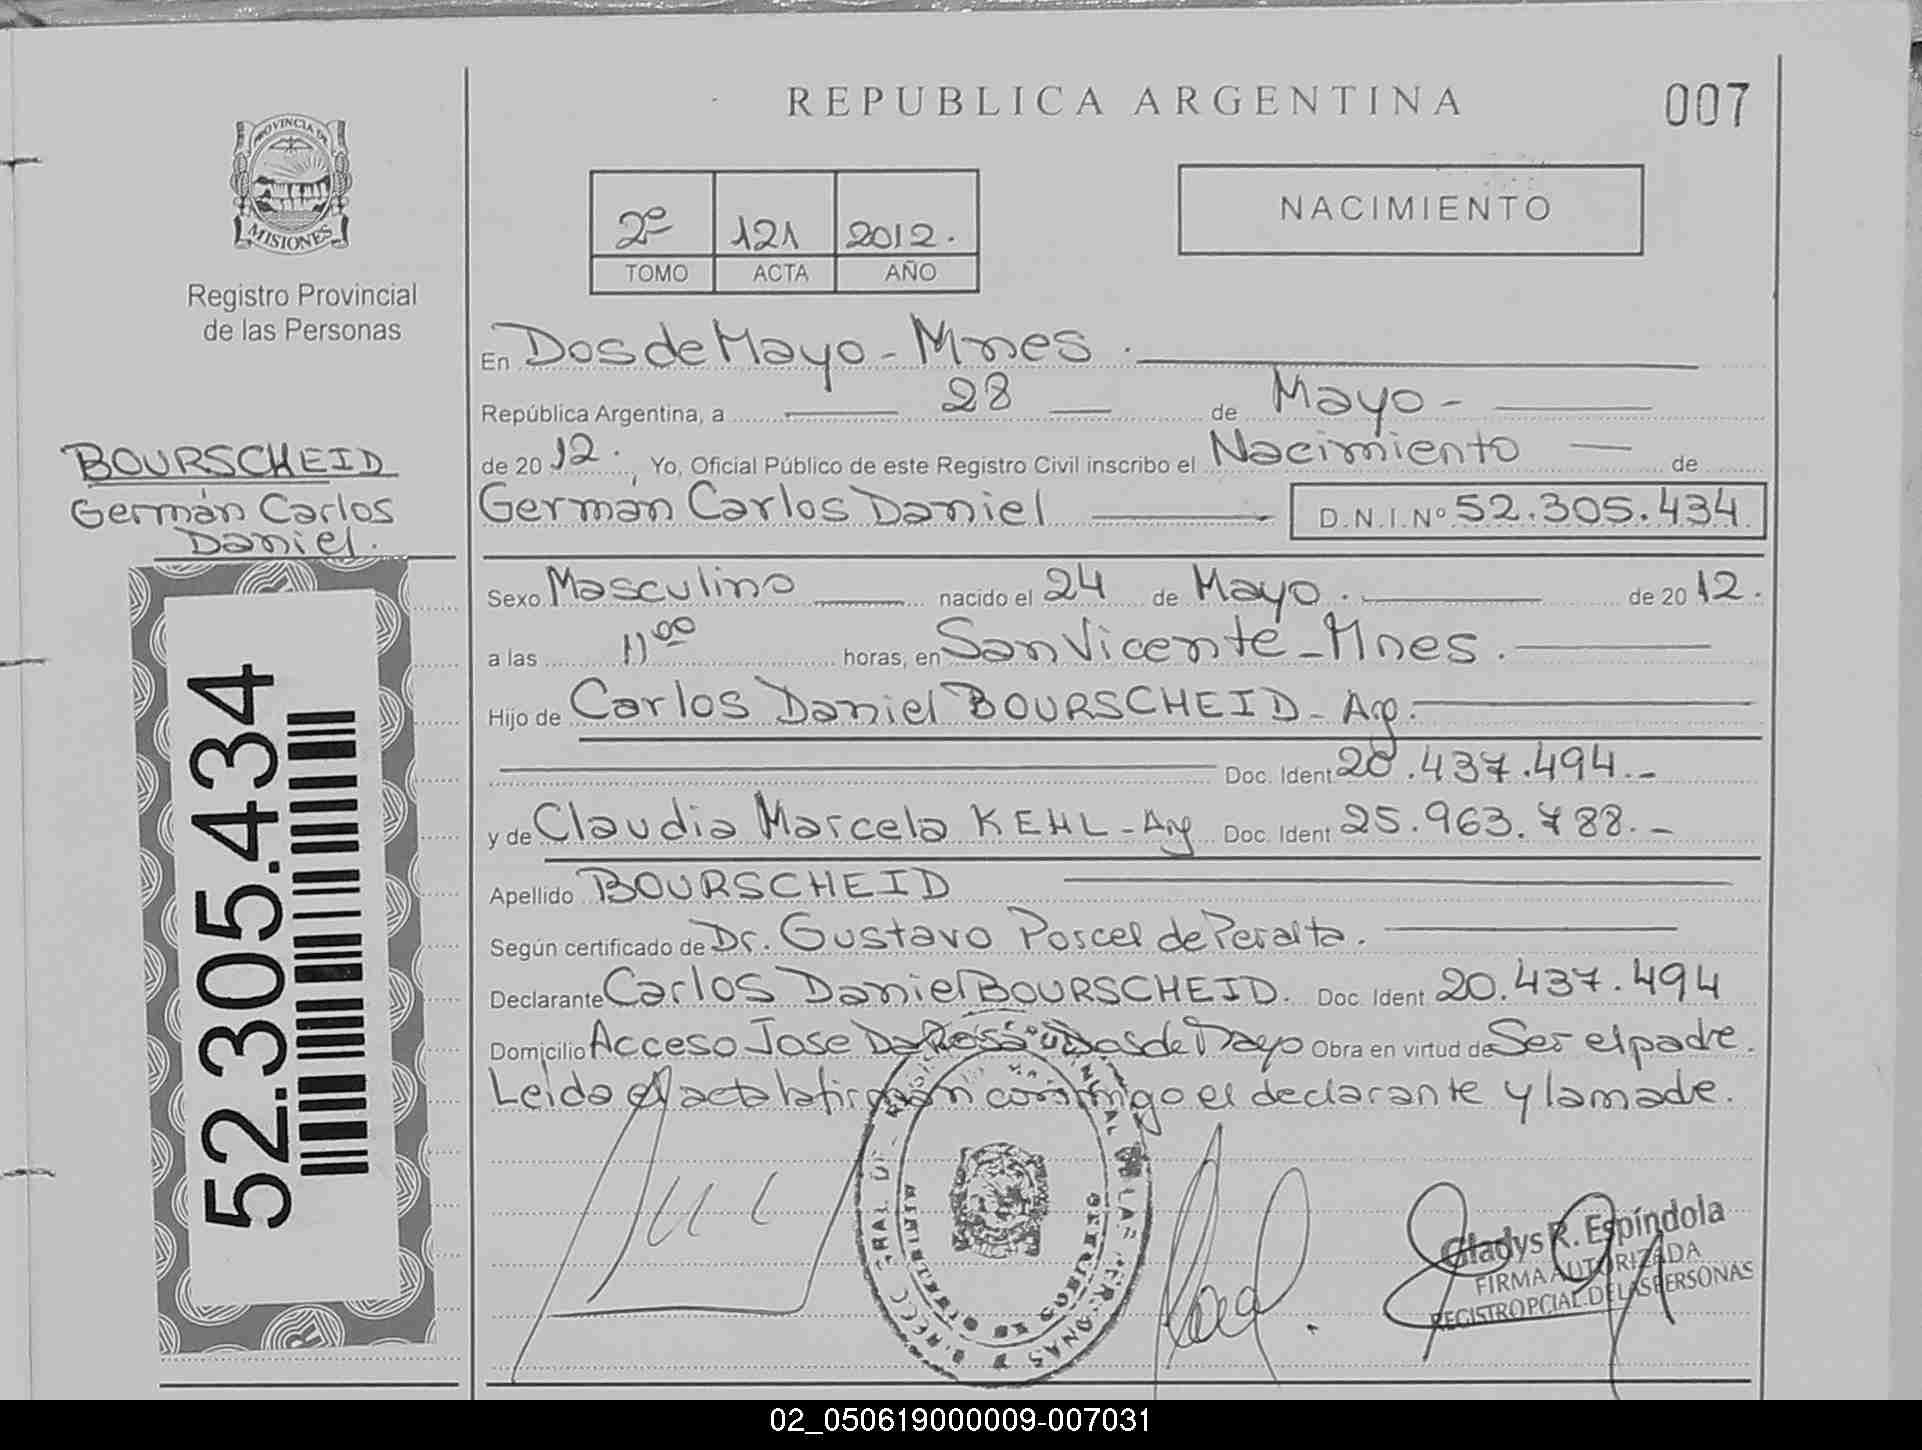 REPUBLICA ARGENTINA
007
PROVINCIA DE
MISIONES
Registro Provincial
de las Personas
2º 121 2012.
TOMO ACTA AÑO
NACIMIENTO
En Dos de Mayo - Mnes.
República Argentina, a 28 de Mayo -
de 20 12. Yo, Oficial Público de este Registro Civil inscribo el Nacimiento de
BOURSCHEID
Germán Carlos
Daniel.
Germán Carlos Daniel D.N.I.Nº 52.305.434
Sexo Masculino nacido el 24 de Mayo. de 20 12.
a las 11 00 horas, en San Vicente - Mnes.
Hijo de Carlos Daniel BOURSCHEID - Arg.
Doc. Ident 20.437.494.-
y de Claudia Marcela KEHL - Arg Doc. Ident 25.963.788.-
Apellido BOURSCHEID
Según certificado de Dr. Gustavo Poscel de Peralta.
Declarante Carlos Daniel BOURSCHEID. Doc. Ident 20.437.494
Domicilio Acceso Jose Da Rosa Dos de Mayo Obra en virtud de Ser el padre.
Leida el acta la firman conmigo el declarante y la madre.
52.305.434
Gladys R. Espíndola
FIRMA AUTORIZADA
REGISTRO PCIAL. DE LAS PERSONAS
02_050619000009-007031